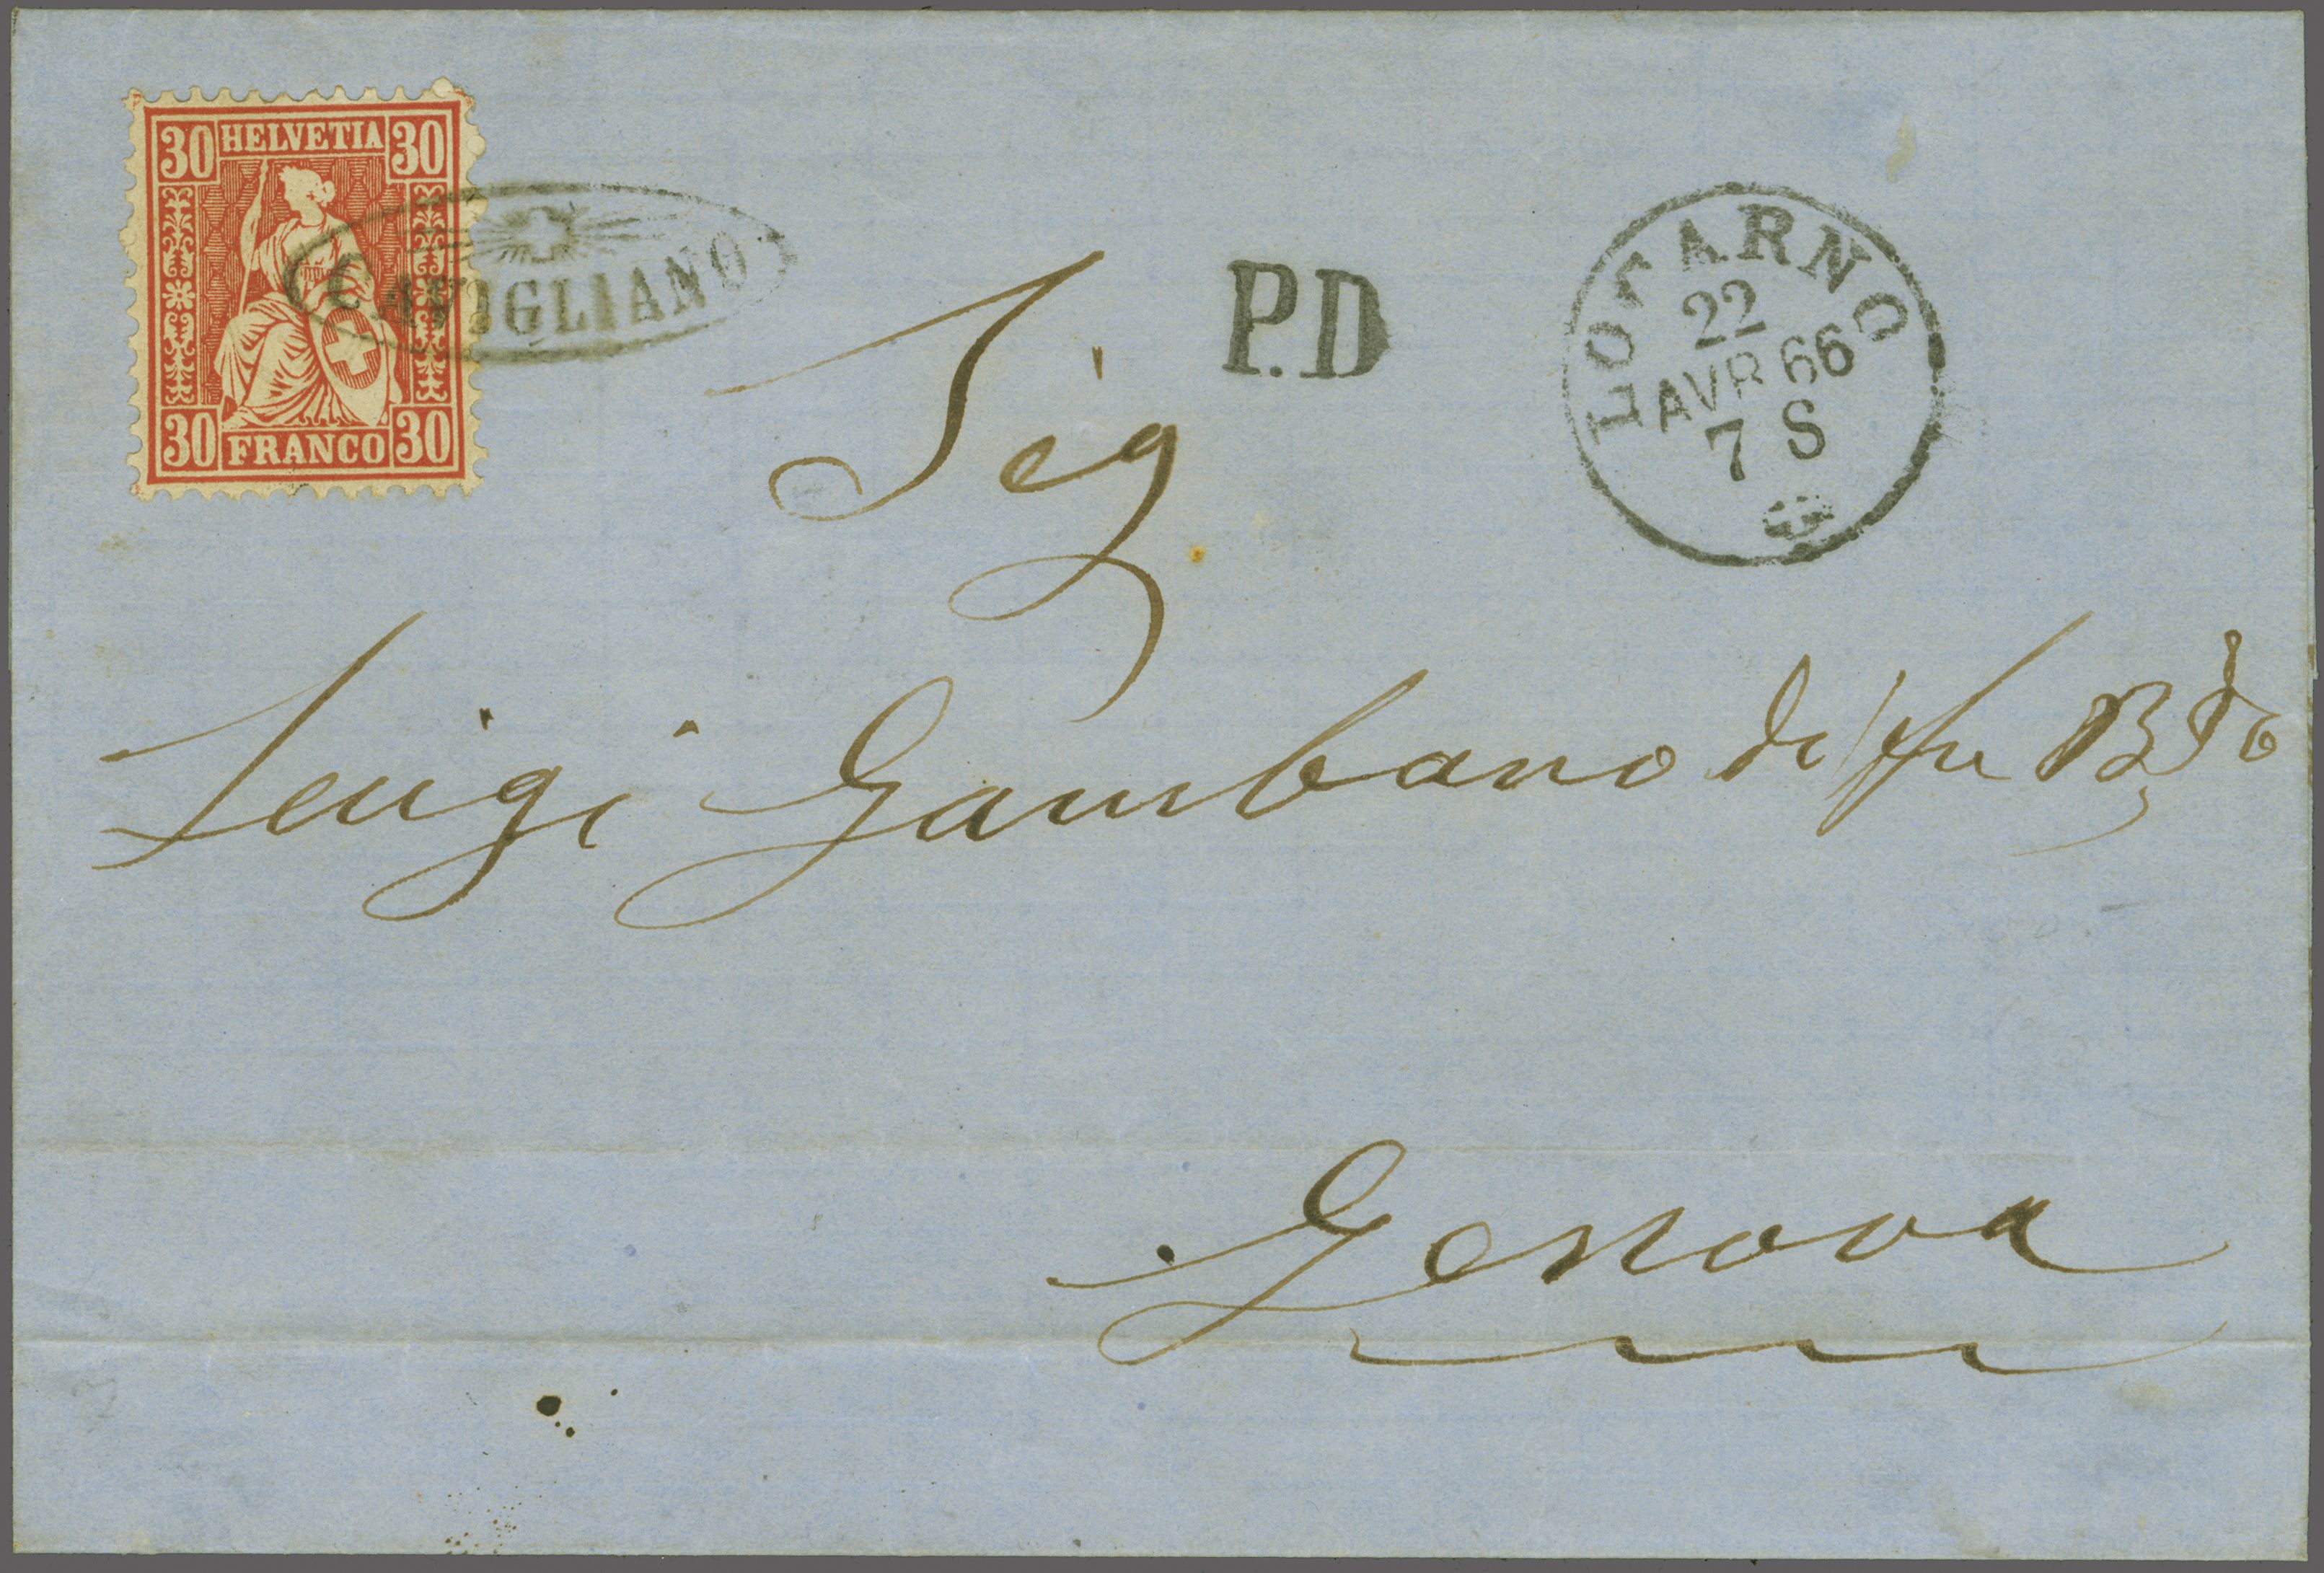 30 HELVETIA 30
30 FRANCO 30
CAVIGLIANO
P.D
LOCARNO
22
AVR 66
7 S
Sig
Luigi Gambaro di
Genova